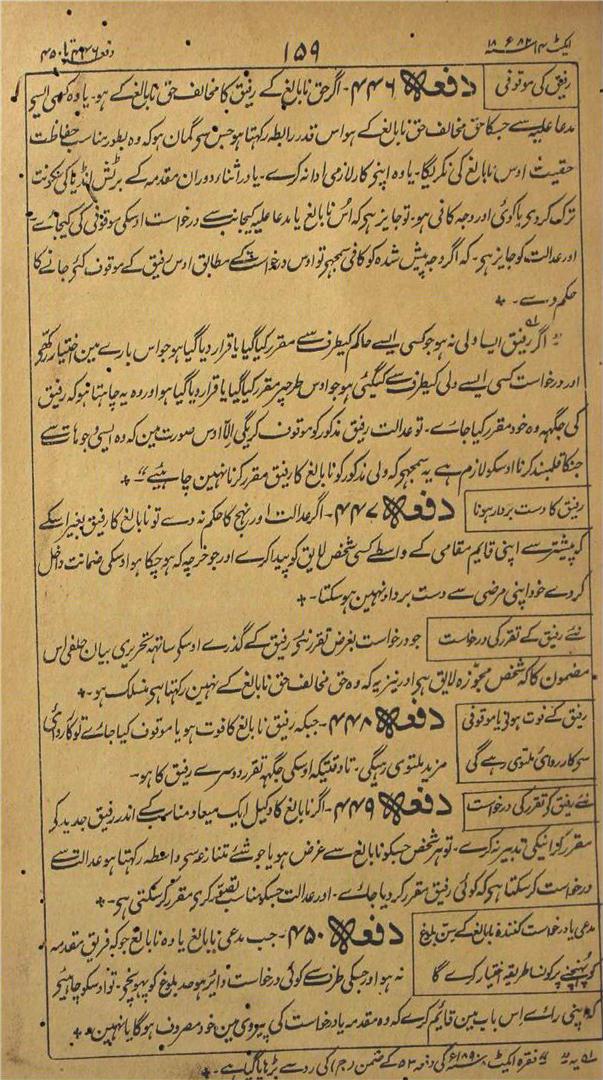 ایکٹ ۱۴ ۱۸۸۲ء ۱۵۹ دفعہ ۴۴۶ تا ۴۵۰
رفیق کی موقوفی دفعہ ۴۴۶ - اگر حق نابالغ کے رفیق کا مخالف حق نابالغ کے ہو - یا وہ کسی ایسے
مدعا علیہ سے جسکا حق مخالف حق نابالغ کے ہو اس قدر رابطہ رکہتا ہو جس سے گمان ہو کہ وہ بطور مناسب حفاظت
حقیت اوس نابالغ کی نکریگا - یا وہ اپنی کار لازمی ادا نہ کرے - یا در اثناء دوران مقدمہ کے برٹش انڈیا کی سکونت
ترک کردی یا کوئی اور وجہ کافی ہو - تو جایز ہی کہ اُس نابالغ یا مدعا علیہ کیجانب سے درخواست اوسکی موقوفی کی کیجاے -
اور عدالت کو جایز ہو - کہ اگر وجہ پیش شدہ کو کافی سمجہے تو اوس درخواست کے مطابق اوس رفیق کے موقوف کئے جانے کا
حکم دے - +
" اگر رفیق ایسا ولی نہ ہو جو کسی ایسے حاکم کیطرف سے مقرر کیا گیا یا قرار دیا گیا ہو جو اس بارے مین اختیار رکہتا ہے
اور درخواست کسی ایسے ولی کیطرف سے کیگئی ہو جو اوس طرحپر مقرر کیا گیا یا قرار دیا گیا ہو اور وہ یہ چاہتا ہو کہ رفیق
کی جگہہ وہ خود مقرر کیا جاے - تو عدالت رفیق مذکور کو موقوف کریگی اِلّا اوس صورت مین کہ وہ ایسی وجوہات سے
جنکا قلمبند کرنا اوسکو لازم ہے یہ سمجہے کہ ولی مذکور کو نابالغ کا رفیق مقرر کرنا نہین چاہیئے " - +
رفیق کا دست بردار ہونا دفعہ ۴۴۷ - اگر عدالت اور نہج کا حکم نہ دے تو نابالغ کا رفیق بغیر اسکے
کہ پیشتر سے اپنی قایم مقامی کے واسطے کسی شخص لایق کو پیدا کرے اور جو خرچہ کہ ہو چکا ہو اوسکی ضمانت داخل
کردے خود اپنی مرضی سے دست بردار نہین ہو سکتا - +
نئے رفیق کے تقرر کی درخواست جو درخواست بغرض تقرر نئے رفیق کے گذرے اوسکے ساتہہ تحریری بیان حلفی اس
مضمون کا کہ شخص مجوزہ لایق ہی اور نیز یہ کہ وہ حق مخالف حق نابالغ کے نہین رکہتا ہی منسلک ہو - +
رفیق کے فوت ہونے یا موقوفی دفعہ ۴۴۸ - جبکہ رفیق نابالغ کا فوت ہو یا موقوف کیا جاے تو کارروائی
سے کارروائی ملتوی رہے گی مزید ملتوی رہیگی - تا وقتیکہ اوسکی جگہہ تقرر دوسرے رفیق کا ہو -
نئے رفیق کے تقرر کی درخواست دفعہ ۴۴۹ - اگر نابالغ کا وکیل ایک میعاد مناسب کے اندر رفیق جدید کے
مقرر کرانیکی تدبیر نہ کرے - تو ہر شخص جسکو نابالغ سے غرض ہو یا جو شئے متنازعہ سے واسطہ رکہتا ہو عدالت سے
درخواست کر سکتا ہی کہ کوئی رفیق مقرر کر دیا جاے - اور عدالت جسکو مناسب تصور کرے مقرر کر سکتی ہی - +
مدعی یا درخواست کنندہ نابالغ کے سن بلوغ دفعہ ۴۵۰ - جب مدعی نابالغ یا وہ نابالغ جو کہ فریق مقدمہ
کو پہنچنے پر کونسا طریقہ اختیار کرے گا نہ ہو اور جسکی طرف سے کوئی درخواست دایر ہو حد بلوغ کو پہونچے - تو اوسکو چاہیئے
کہ اپنی راے اس باب مین قائم کرے کہ وہ مقدمہ یا درخواست کی پیروی مین خود مصروف ہوگا یا نہین - +
یہ " " فقرہ ایکٹ ۸ ۱۸۹۰ء کی دفعہ ۵۳ کے ضمن (ج) کی رو سے بڑہایا گیا ہے - +